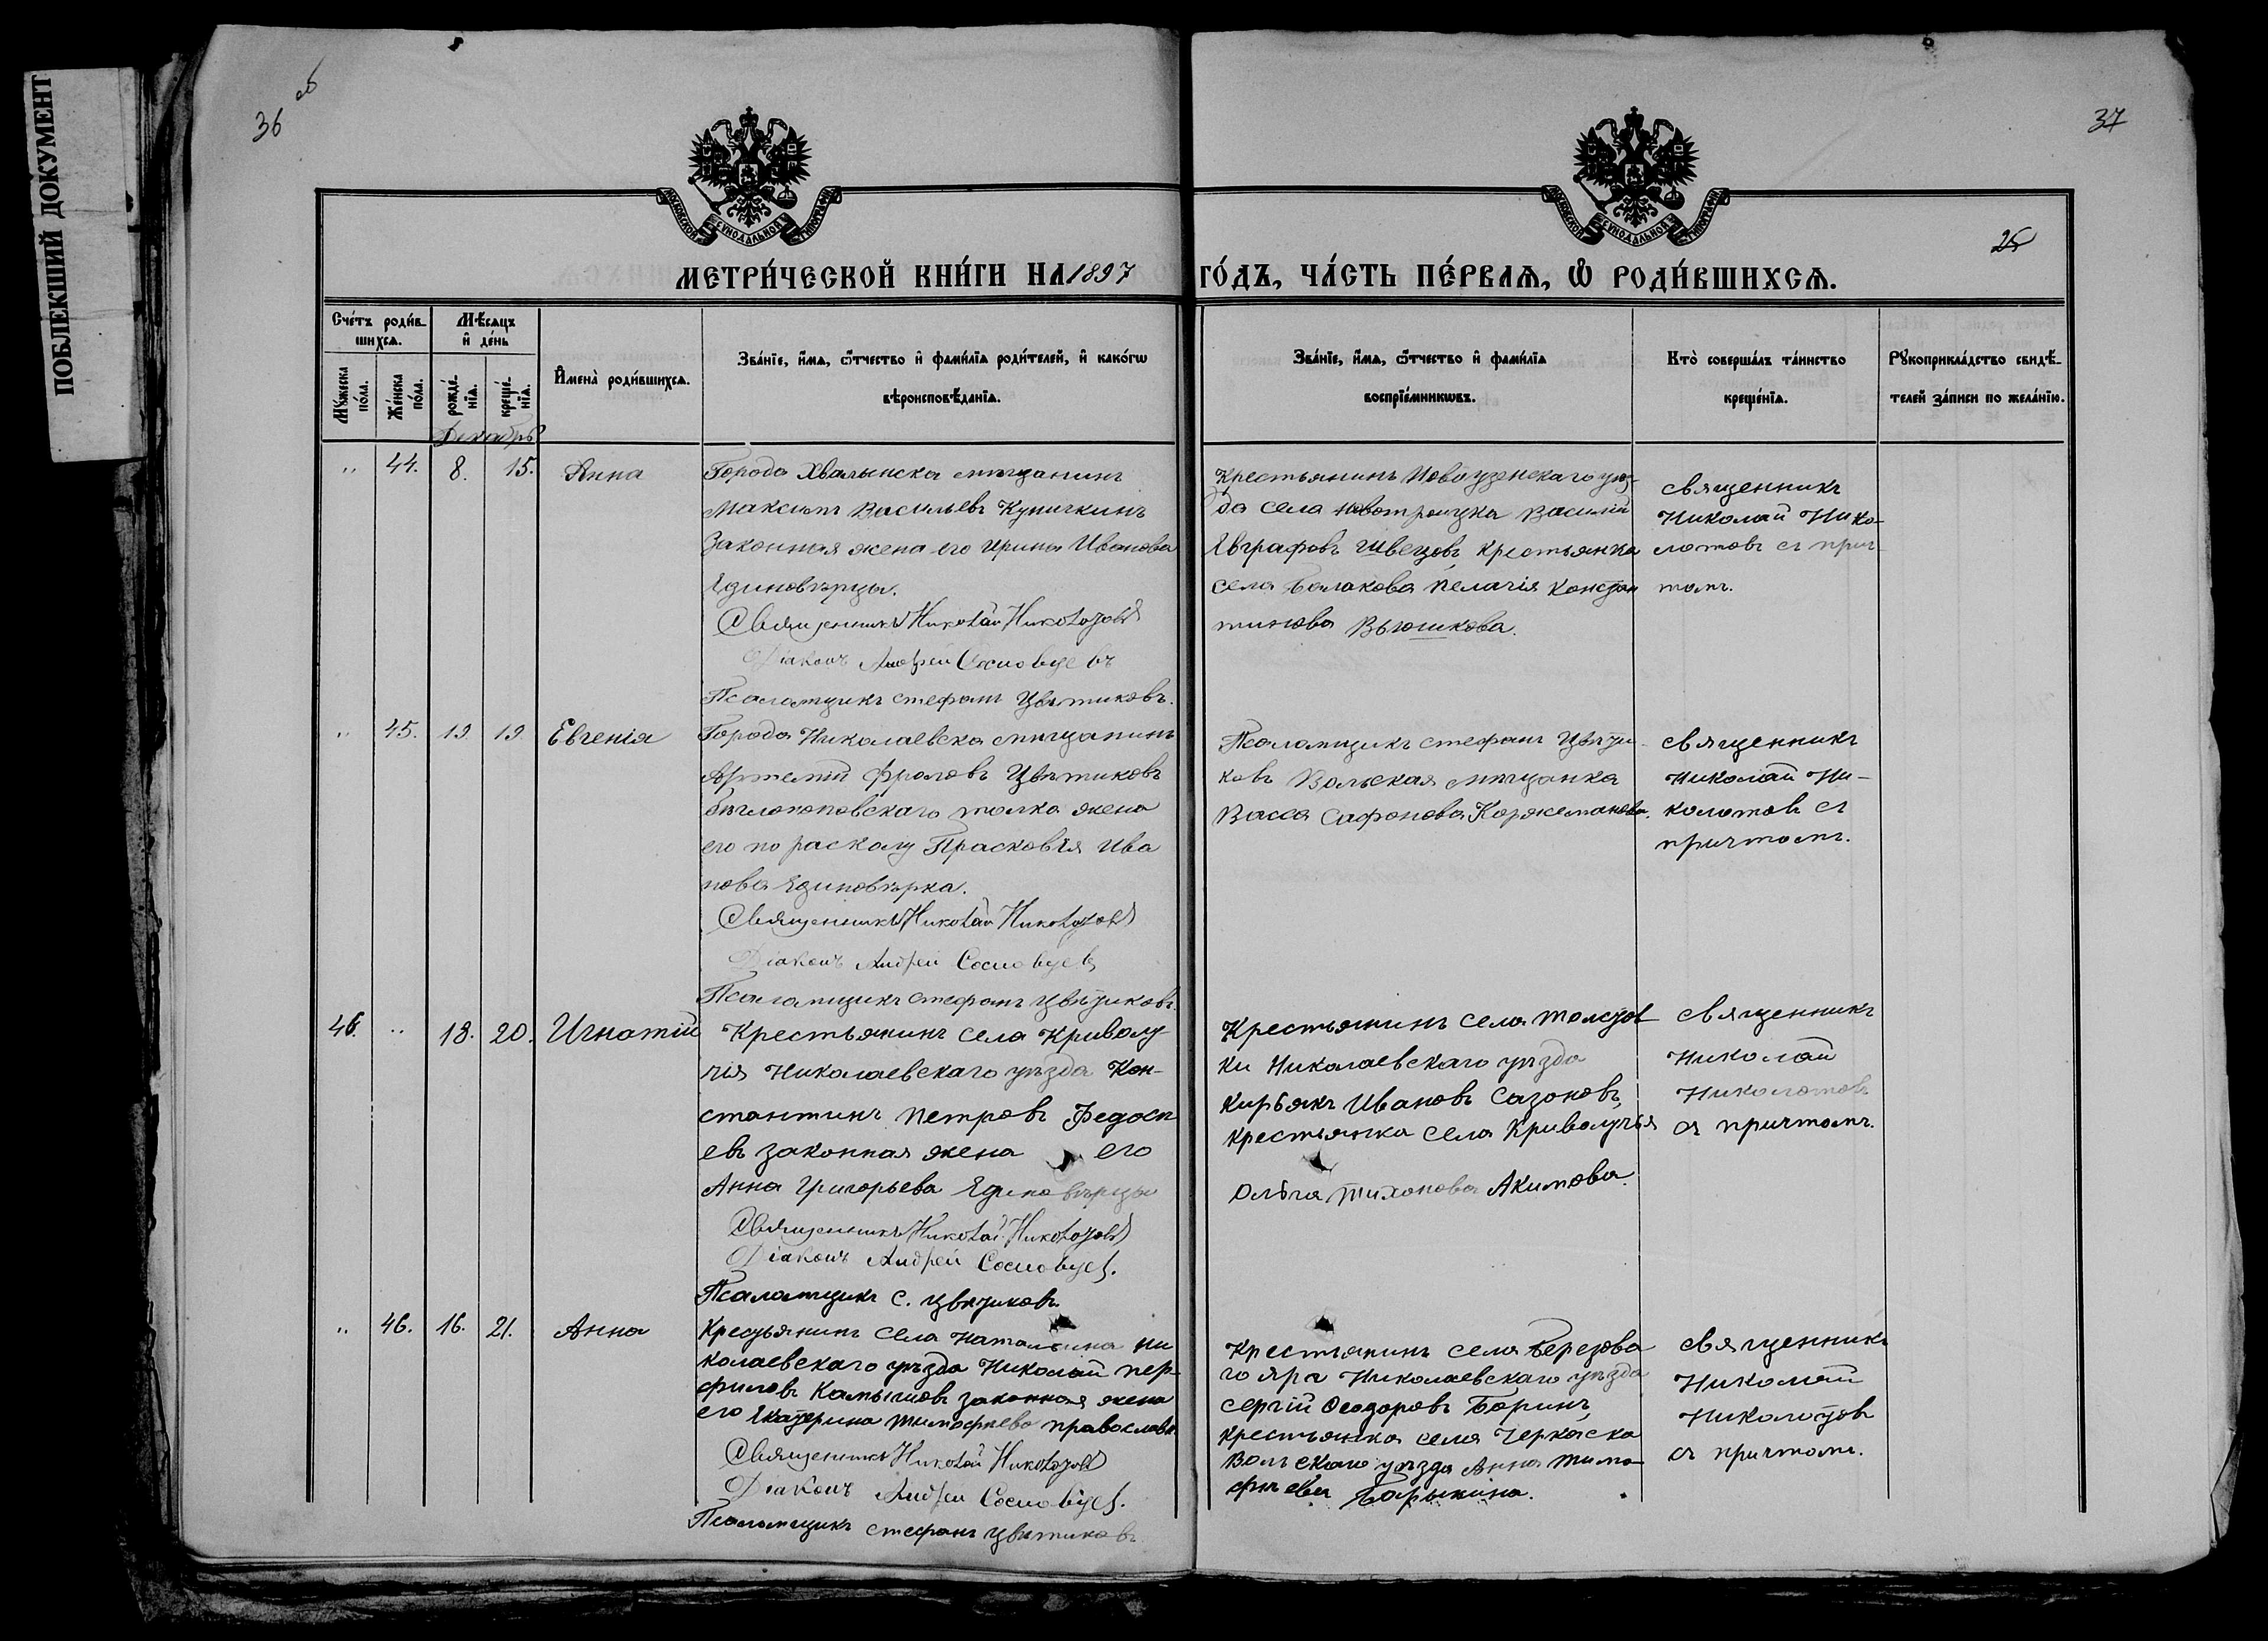 ПОБЛЕКШИЙ ДОКУМЕНТ
36 об
37
25
МОСКОВСКОЙ СѴНОДАЛЬНОЙ ТИПОГРАФІИ
МОСКОВСКОЙ СѴНОДАЛЬНОЙ ТИПОГРАФІИ
МЕТРИ́ЧЕСКОЙ КНИ́ГИ НА 1897 ГО́ДЪ, ЧА́СТЬ ПЕ́РВАѦ, Ѽ РОДИ́ВШИХСѦ.
Сче́тъ роди́в-
шихсѧ.
Мѣ́сѧцъ
и҆ де́нь
Му́жеска
по́ла.
Же́нска
по́ла.
рожде́-
нїѧ.
креще́-
нїѧ.
И҆мена̀ роди́вшихсѧ.
Зва́нїе, и҆́мѧ, ѻ҆́тчество и҆ фами́лїѧ роди́телей, и҆ како́гѡ
вѣроисповѣ́данїѧ.
Зва́нїе, и҆́мѧ, ѻ҆́тчество и҆ фами́лїѧ
воспрїе́мникѡвъ.
Кто̀ соверша́лъ та́инство
креще́нїѧ.
Рꙋкоприкла́дство свидѣ́-
телей за́писи по жела́нїю.
Декабрь
" 44. 8. 15. Анна
Города Хвалынска мѣщанинъ
Максимъ Васильевъ Куничкинъ
Законная жена его Ирина Иванова
Единовѣрцы.
Священникъ Николай Николотовъ
Діаконъ Андрей Сосновцевъ
Псаломщикъ Стефанъ Цвѣтиковъ.
Крестьянинъ Новоузенскаго уѣз-
да села Новотроицка Василий
Евграфовъ Швецовъ, крестьянка
села Балакова Пелагія Констан
тинова Вьюшкова.
Священникъ
Николай Нико-
лотовъ съ прич
томъ.
" 45. 19 19 Евгенія
Города Николаевска мѣщанинъ
Артемій Фроловъ Цвѣтиковъ
бѣглопоповскаго толка жена
его по расколу Прасковія Ива
нова Единовѣрка.
Священникъ Николай Николотовъ
Діаконъ Андрей Сосновцевъ
Псаломщикъ Стефанъ Цвѣтиковъ.
Псаломщикъ Стефанъ Цвѣти-
ковъ Вольская мѣщанка
Васса Сафонова Коржеманова.
Священникъ
Николай Ни-
колотовъ съ
причтомъ.
46. " 18. 20. Игнатій
Крестьянинъ села Криволу
чія Николаевскаго уѣзда Кон-
стантинъ Петровъ Федосѣ
евъ законная жена его
Анна Григорьева Единовѣрцы
Священникъ Николай Николотовъ
Діаконъ Андрей Сосновцев.
Псаломщикъ С. Цвѣтиковъ.
Крестьянинъ села Толстов
ки Николаевскаго уѣзда
Кирьякъ Ивановъ Сазоновъ,
крестьянка села Криволучья
Ольга Тихонова Акимова.
Священникъ
Николай
Николотовъ
съ причтомъ.
" 46. 16. 21. Анна
Крестьянинъ села Натальина Ни
колаевскаго уѣзда Николай Пер-
филовъ Камышовъ законная жена
его Екатерина Тимофѣева православн.
Священникъ Николай Николотовъ
Діаконъ Андрей Сосновцев.
Псаломщикъ Стефанъ Цвѣтиковъ
Крестьянинъ села Березова
го яра Николаевскаго уѣзда
Сергій Ѳеодоровъ Боринъ,
крестьянка села Черкаска
Вольскаго уѣзда Анна Тимо-
фѣева Барыкина.
Священникъ
Николай
Николотовъ
съ причтомъ.